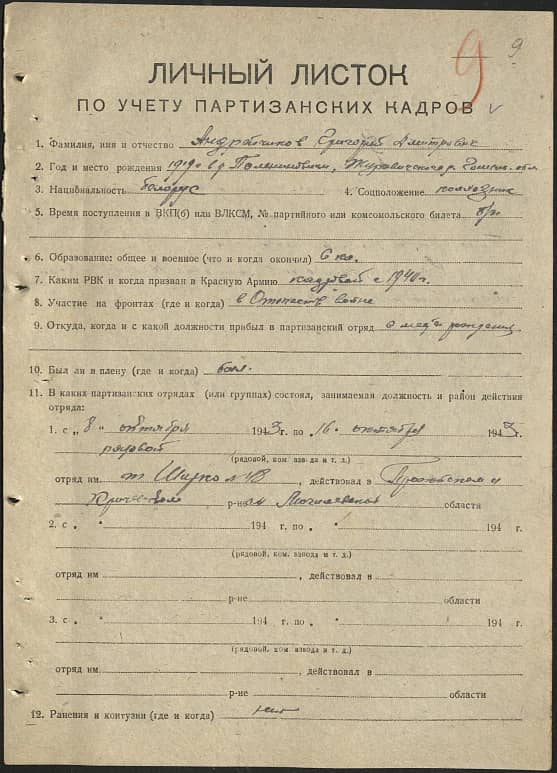 9 9
ЛИЧНЫЙ ЛИСТОК
ПО УЧЕТУ ПАРТИЗАНСКИХ КАДРОВ
1. Фамилия, имя и отчество Григорий Дмитриевич
2. Год и место рождения 1919
3. Национальность белорус 4. Соцположение колхозник
5. Время поступления в ВКП(б) или ВЛКСМ, № партийного или комсомольского билета б/п
6. Образование: общее и военное (что и когда окончил) 6 кл.
7. Каким РВК и когда призван в Красную Армию кадровой с 1940 г.
8. Участие на фронтах (где и когда) в Отечеств войне
9. Откуда, когда и с какой должности прибыл в партизанский отряд с места рождения
10. Был ли в плену (где и когда) был.
11. В каких партизанских отрядах (или группах) состоял, занимаемая должность и район действия
отряда:
1. с „ 8 " октября 1943 г. по „ 16 " октября 1943 г.
рядовой
(рядовой, ком. взвода и т. д.)
отряд им. № 48, действовал в
р-не Могилевской области
2. с „ " 194 г. по „ " 194 г.
(рядовой, ком. взвода и т. д.)
отряд им , действовал в
р-не области
3. с „ " 194 г. по „ " 194 г.
(рядовой, ком. взвода и т. д.)
отряд им. , действовал в
р-не области
12. Ранения и контузии (где и когда) нет